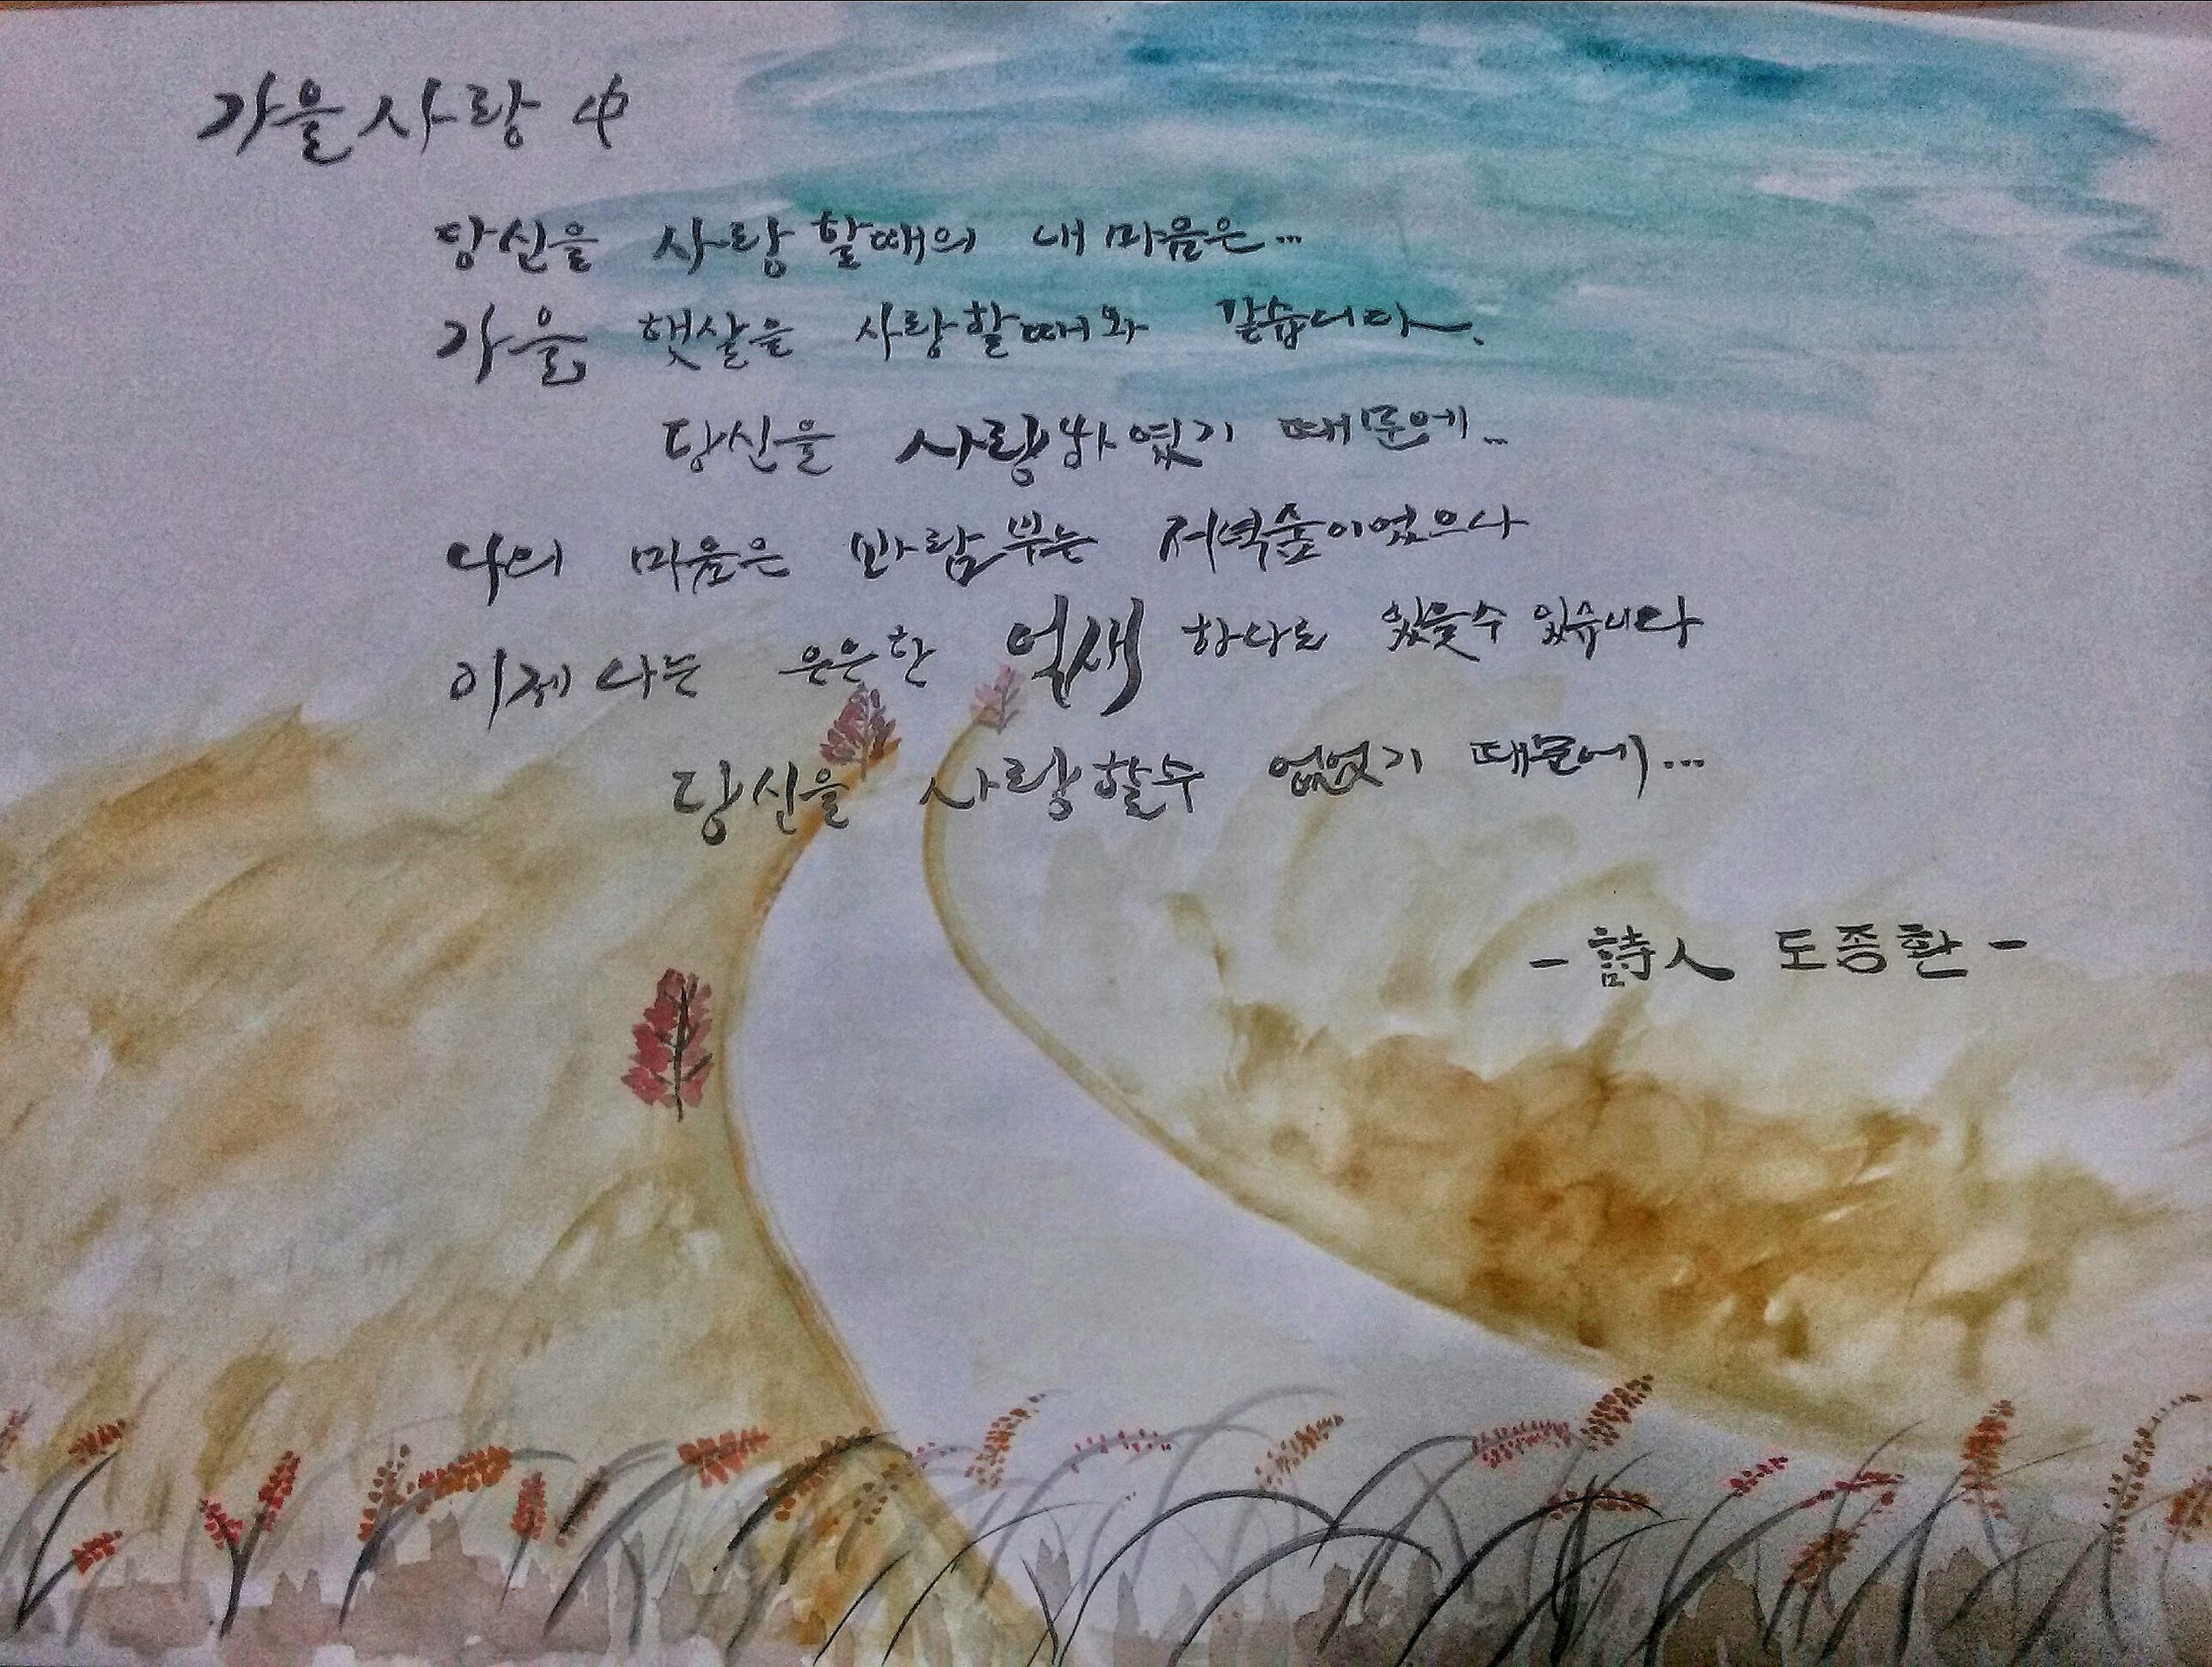 가을사랑 中
당신을 사랑할때의 내마음은...
가을 햇살을 사랑할때와 같습니다.
당신을 사랑하였기 때문에...
나의 마음은 바람부는 저녁숲이었으나
이제 나는 은은한 억새 하나로 있을수 있습니다
당신을 사랑할수 없었기 때문에...
- 詩人 도종환 -